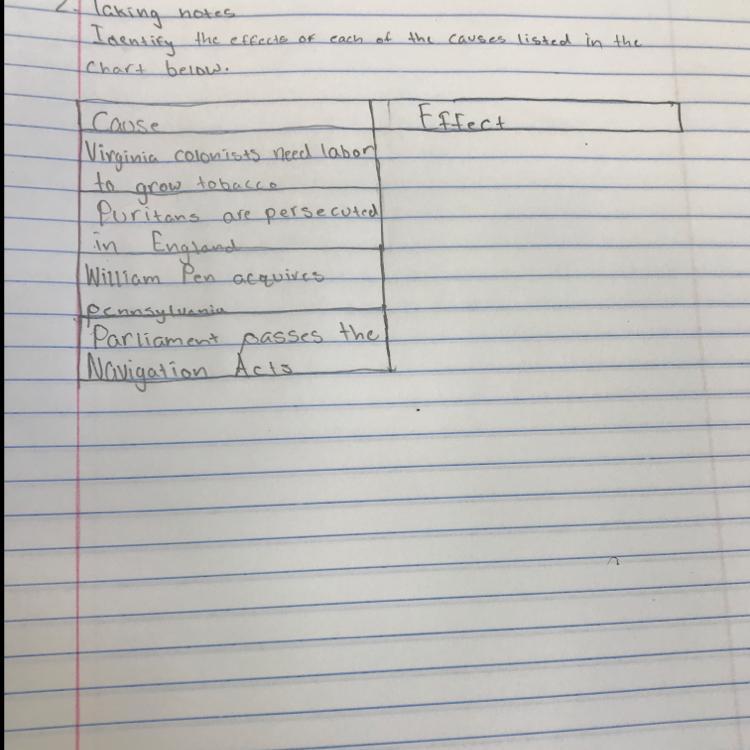 2. Taking notes
Identify the effects of each of the causes listed in the
Chart below.
Cause
Effect
Virginia colonists need labor
to grow tobacco
Puritans are persecuted
in England
William Pen acquires
pennsylvania
Parliament passes the
Navigation Acts